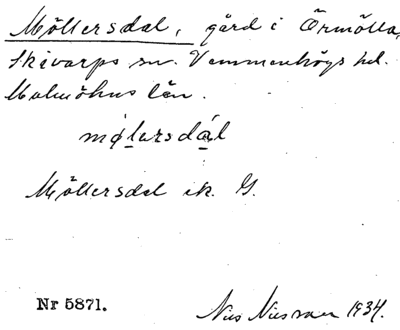 Möllersdal, gård i Örmölla,
Skivarps sn. Vemmenhögs hd.
Malmöhus län.
mølarsdál
Möllersdal ek. G.
Nr 5871.
Nils Nilsson 1934.